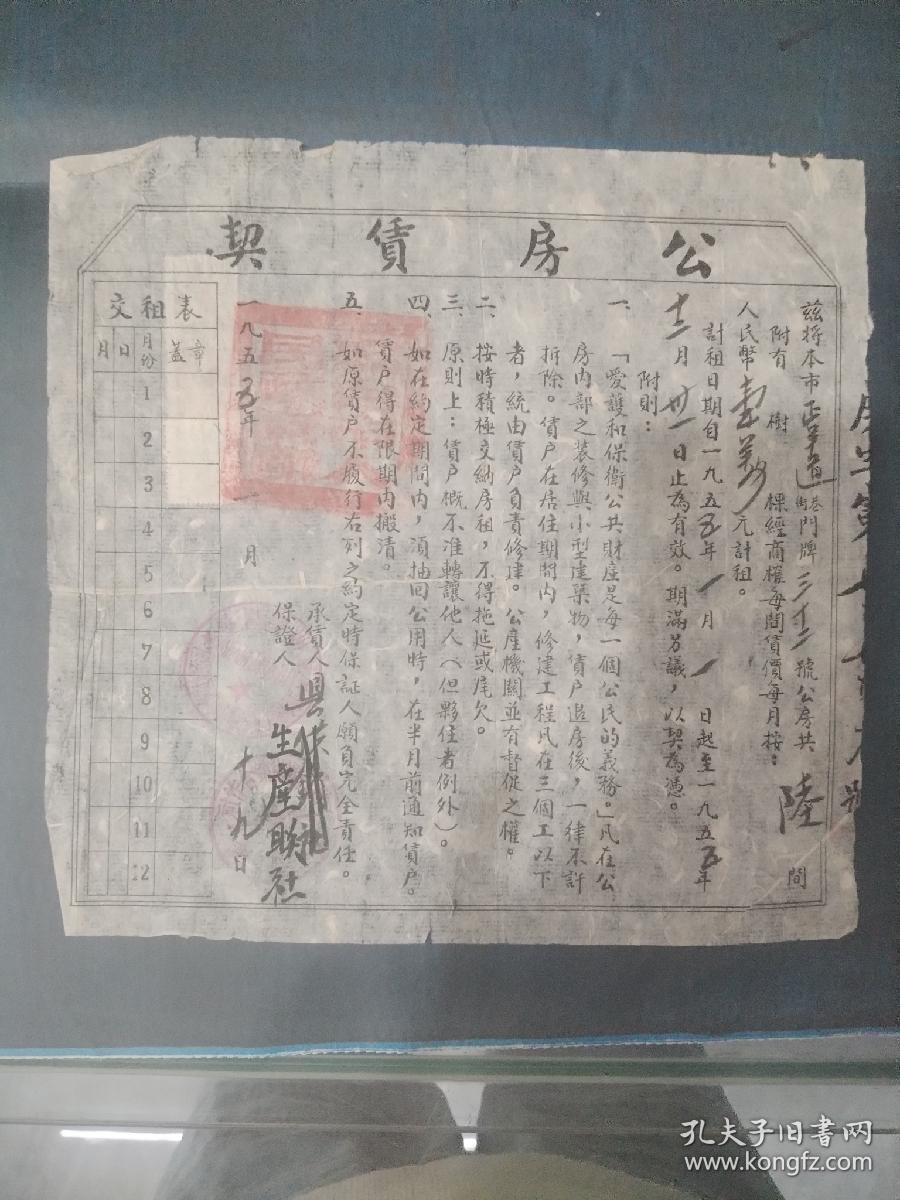 公房賃契
茲將本市正 街巷門牌三十二號公房共陸間
附有 樹 棵經商權每間賃價每月按：
人民幣壹萬 元計租。
計租日期自一九五五年一月一日起至一九五五年
十二月卅一日止為有效。期滿另議，以契為憑。
附則：
一、「愛護和保衛公共財產是每一個公民的義務。」凡在公
房內部之裝修與小型建築物，賃戶退房後，一律不許
拆除。賃戶在居住期間內，修建工程凡在三個工以下
者，統由賃戶負責修建。公產機關並有督促之權。
二、按時積極交納房租，不得拖延或尾欠。
三、原則上：賃戶概不准轉讓他人（但夥住者例外）。
四、如在約定期間內，須抽回公用時，在半月前通知賃戶。
賃戶得在限期內搬清。
五、如原賃戶不履行右列之約定時保証人願負完全責任。
承賃人縣
生產聯社
保證人
一九五五年一月十九日
交租表
月日 月份 蓋章
1
2
3
4
5
6
7
8
9
10
11
12
孔夫子旧书网
www.kongfz.com